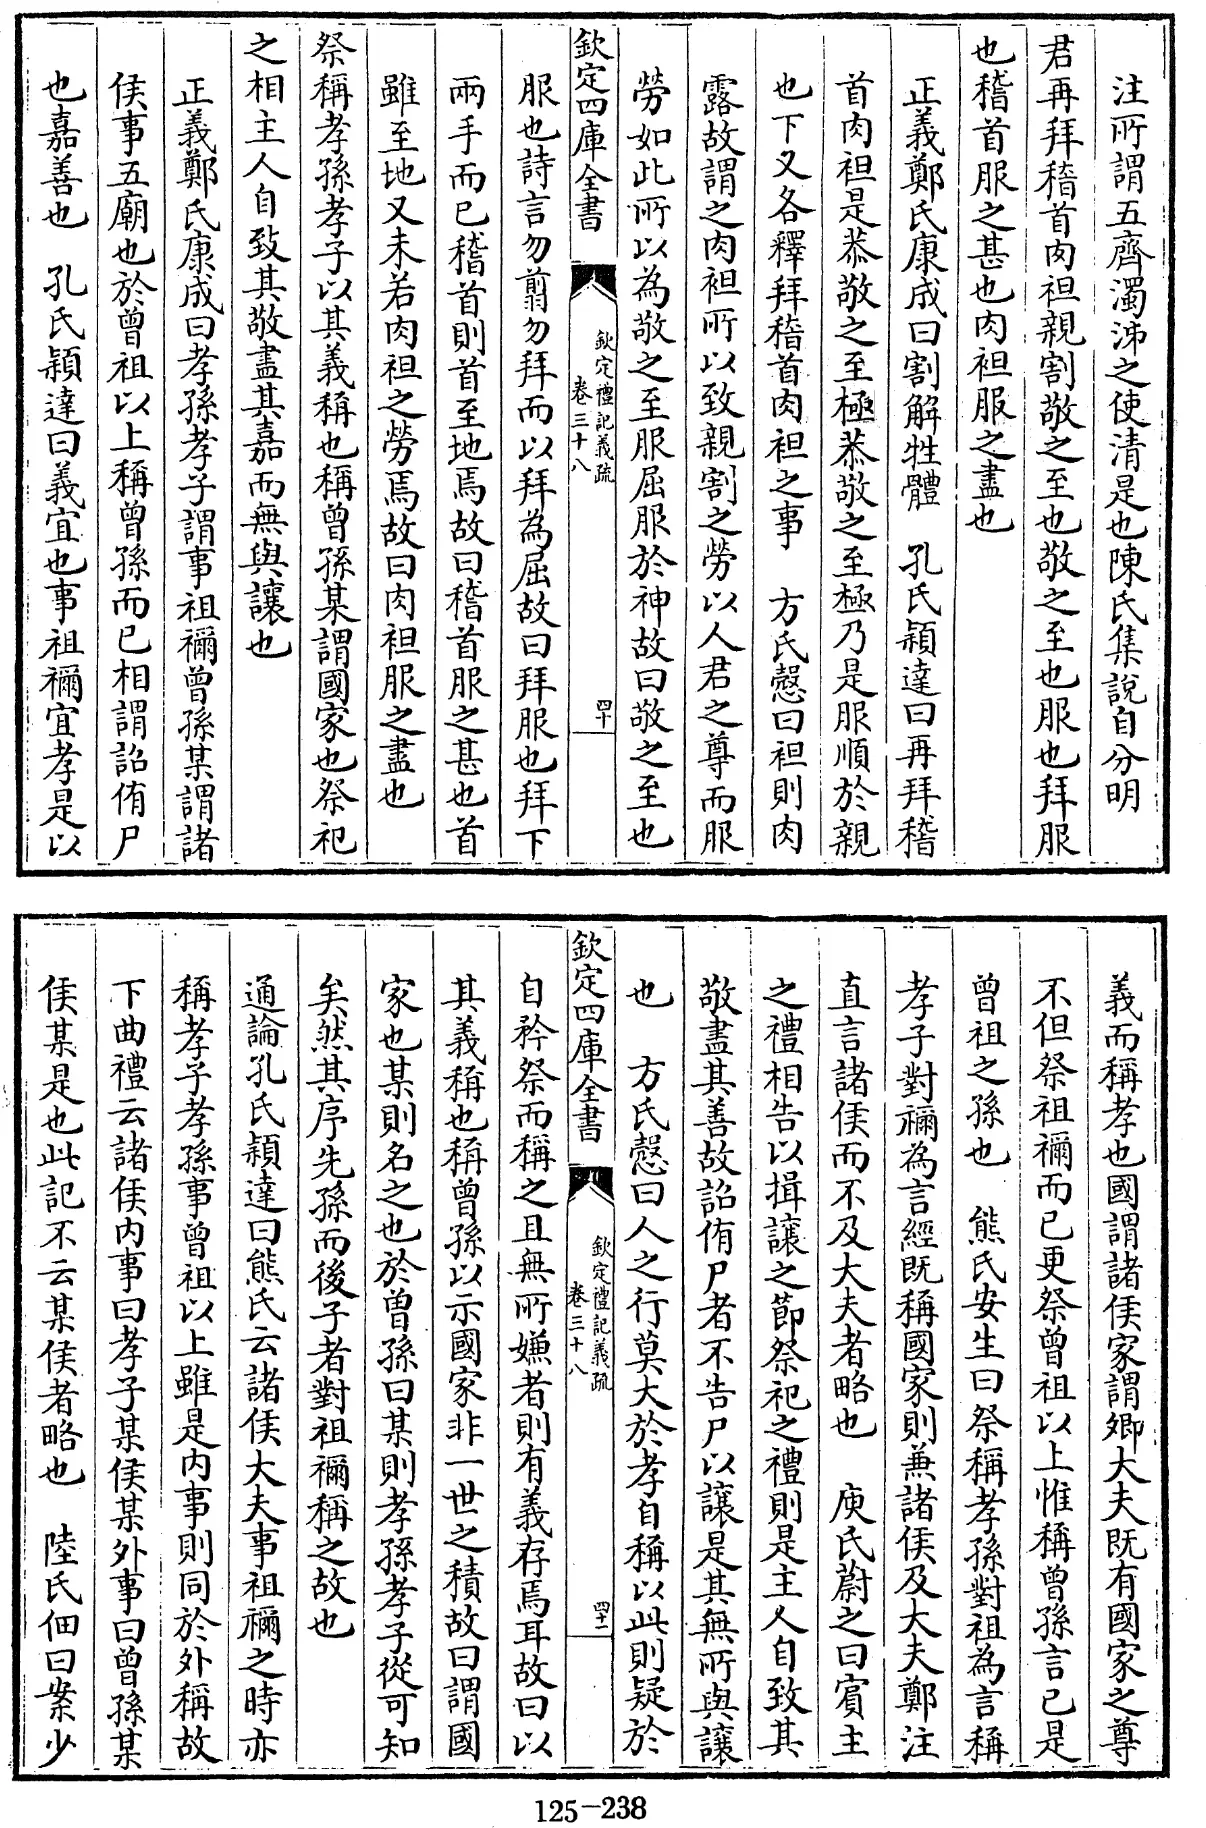 注所謂五齊濁泲之使清是也陳氏集說自分明
君再拜稽首肉袒親割敬之至也敬之至也服也拜服
也稽首服之甚也肉袒服之盡也
正義鄭氏康成曰割解牲體　孔氏穎達曰再拜稽
首肉袒是恭敬之至極恭敬之至極乃是服順於親
也下又各釋拜稽首肉袒之事　方氏慤曰袒則肉
露故謂之肉袒所以致親割之勞以人君之尊而服
勞如此所以為敬之至服屈服於神故曰敬之至也
欽定四庫全書
欽定禮記義疏
卷三十八
四十
服也詩言勿翦勿拜而以拜為屈故曰拜服也拜下
兩手而已稽首則首至地焉故曰稽首服之甚也首
雖至地又未若肉袒之勞焉故曰肉袒服之盡也
祭稱孝孫孝子以其義稱也稱曾孫某謂國家也祭祀
之相主人自致其敬盡其嘉而無與讓也
正義鄭氏康成曰孝孫孝子謂事祖禰曾孫某謂諸
侯事五廟也於曾祖以上稱曾孫而已相謂詔侑尸
也嘉善也　孔氏穎達曰義宜也事祖禰宜孝是以
義而稱孝也國謂諸侯家謂卿大夫既有國家之尊
不但祭祖禰而已更祭曾祖以上惟稱曾孫言已是
曾祖之孫也　熊氏安生曰祭稱孝孫對祖為言稱
孝子對禰為言經既稱國家則兼諸侯及大夫鄭注
直言諸侯而不及大夫者略也　庾氏蔚之曰賓主
之禮相告以揖讓之節祭祀之禮則是主人自致其
敬盡其善故詔侑尸者不告尸以讓是其無所與讓
也　方氏慤曰人之行莫大於孝自稱以此則疑於
欽定四庫全書
欽定禮記義疏
卷三十八
四十一
自矜祭而稱之且無所嫌者則有義存焉耳故曰以
其義稱也稱曾孫以示國家非一世之積故曰謂國
家也某則名之也於曾孫曰某則孝孫孝子從可知
矣然其序先孫而後子者對祖禰稱之故也
通論孔氏穎達曰熊氏云諸侯大夫事祖禰之時亦
稱孝子孝孫事曾祖以上雖是內事則同於外稱故
下曲禮云諸侯內事曰孝子某侯某外事曰曾孫某
侯某是也此記不云某侯者略也　陸氏佃曰案少
125-238